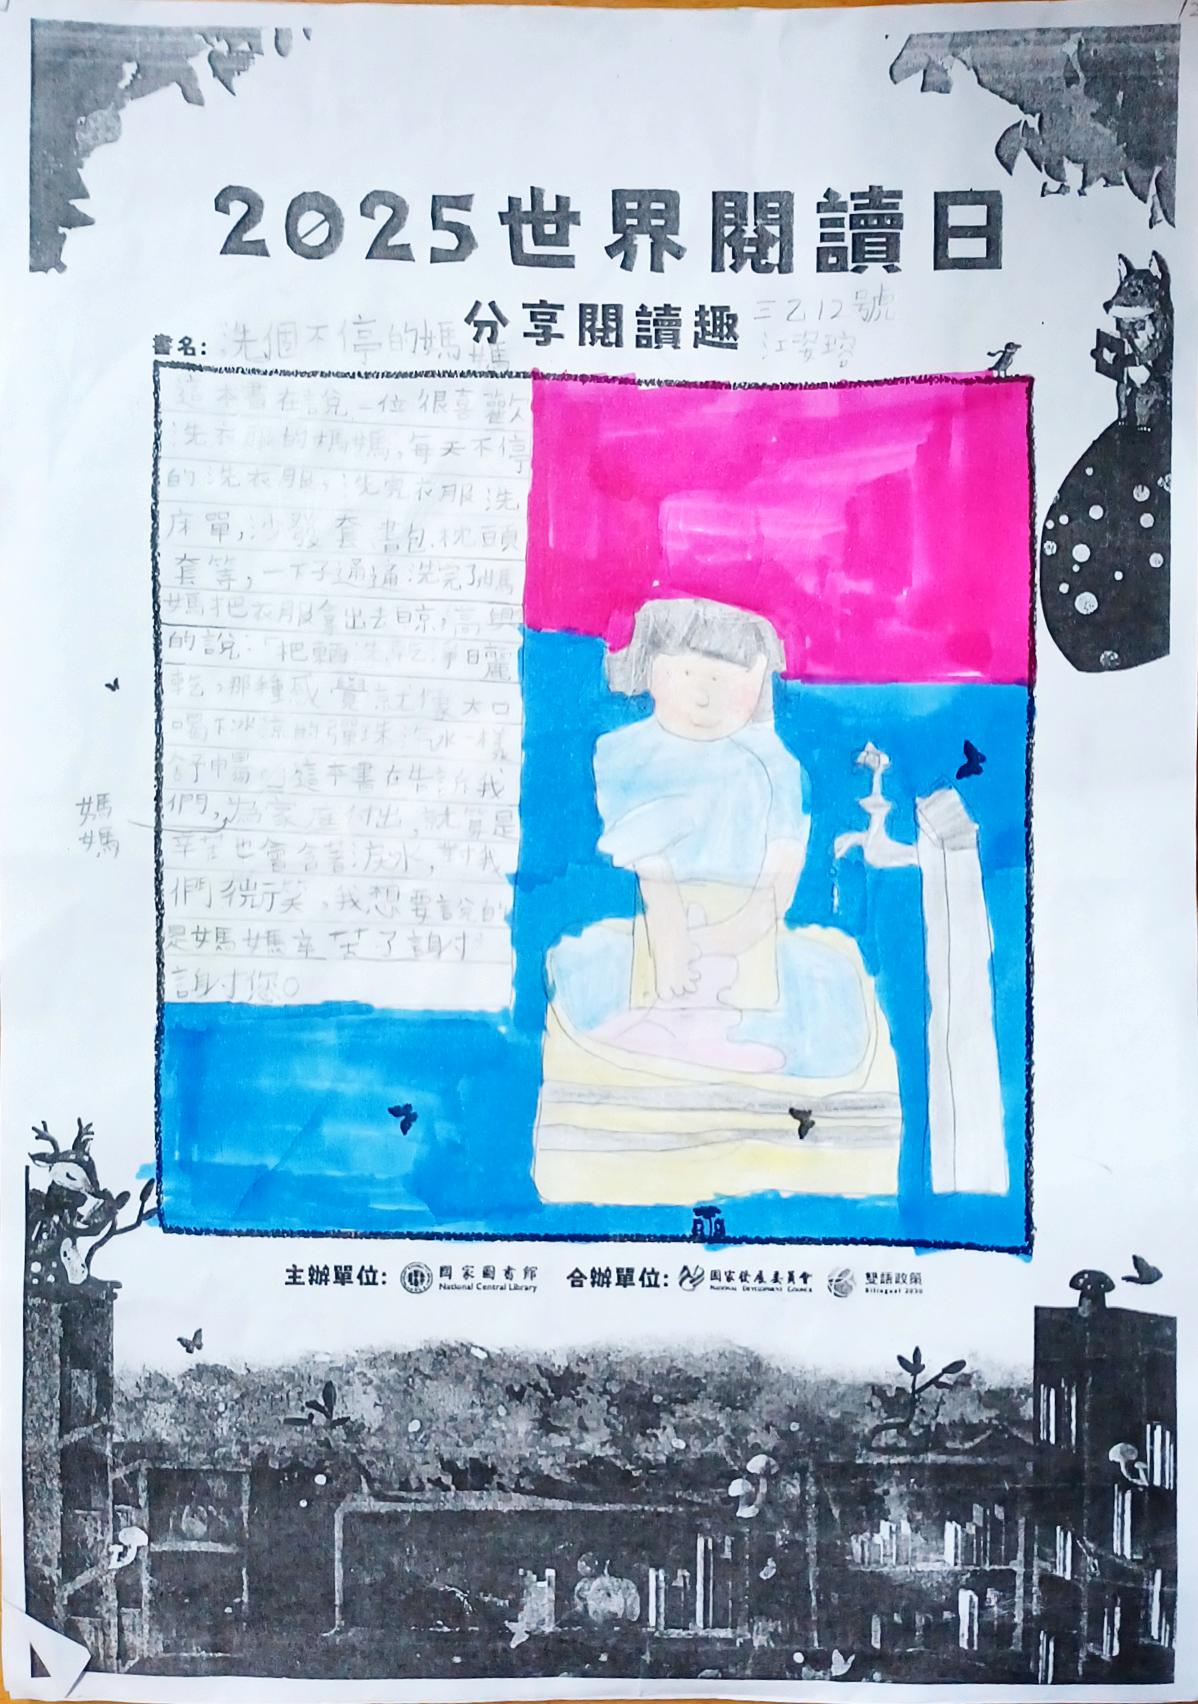 2025世界閱讀日
分享閱讀趣
三乙12號
江姿瑢
書名:洗個不停的媽媽
這本書在說一位很喜歡
洗衣服的媽媽,每天不停
的洗衣服,洗完衣服洗
床單,沙發套書包枕頭
套等,一下子通通洗完了媽
媽把衣服拿出去晾,高興
的說:「把東西洗乾淨曬
乾,那種感覺就像大口
喝下冰涼的彈珠汽水一樣
舒暢。」這本書在告訴我
們,媽媽為家庭付出,就算是
辛苦也會含著淚水,對我
們微笑,我想要說的
是媽媽辛苦了謝謝
謝您。
主辦單位: 國家圖書館 National Central Library 合辦單位: 國家發展委員會 National Development Council 雙語政策 Bilingual 2030